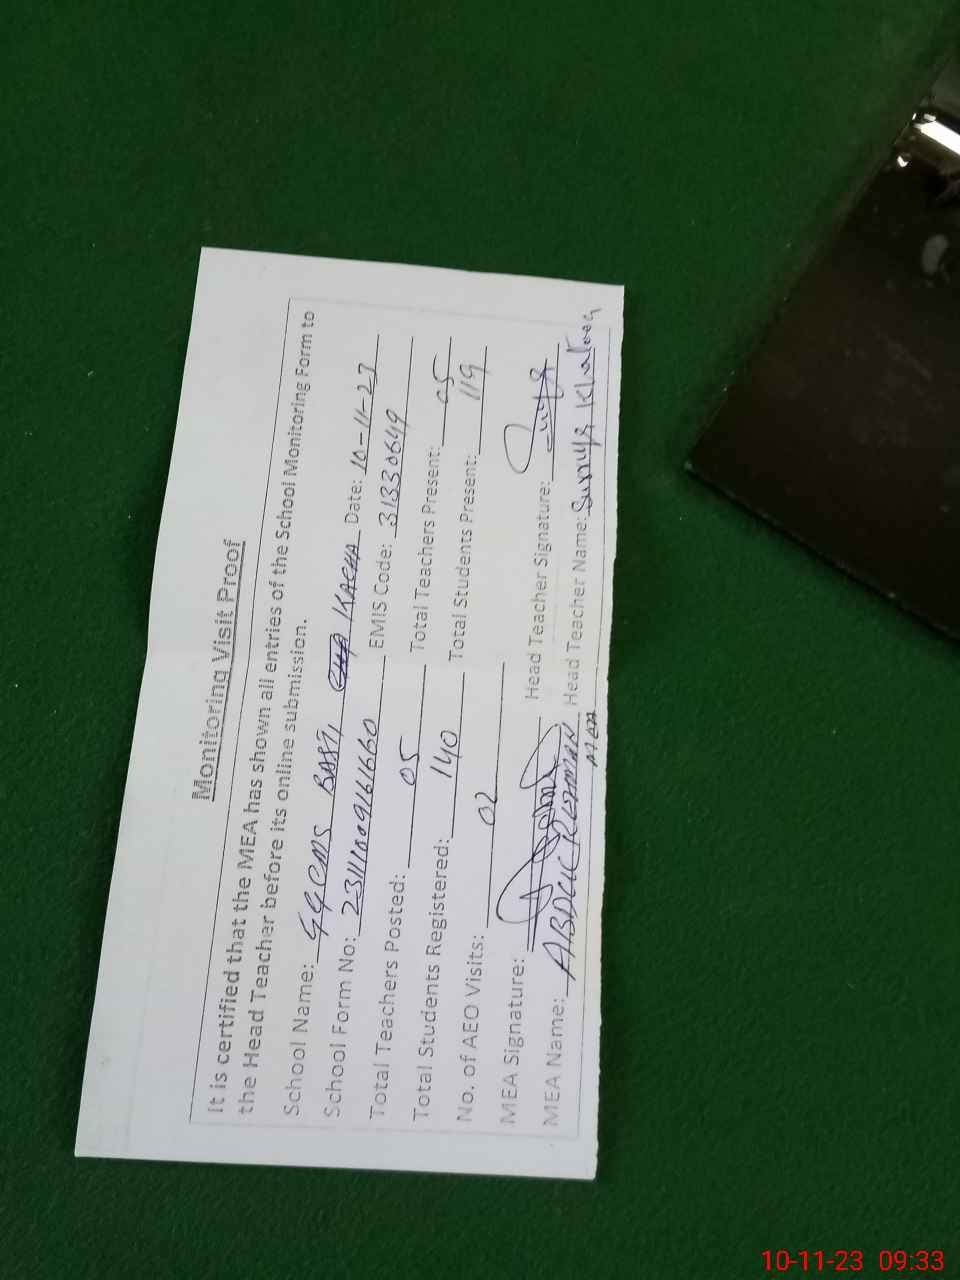 Monitoring Visit Proof
It is certified that the MEA has shown all entries of the School Monitoring Form to
the Head Teacher before its online submission.
School Name: GGCMS BASTI KACHA Date: 10-11-23
School Form No: EMIS Code: 31330649
Total Teachers Posted: 05 Total Teachers Present: 05
Total Students Registered: 140 Total Students Present: 119
No. of AEO Visits: 02
MEA Signature: Head Teacher Signature:
MEA Name: ABDUL REHMAN Head Teacher Name: Surryya Khatoon
MEA
10-11-23 09:33